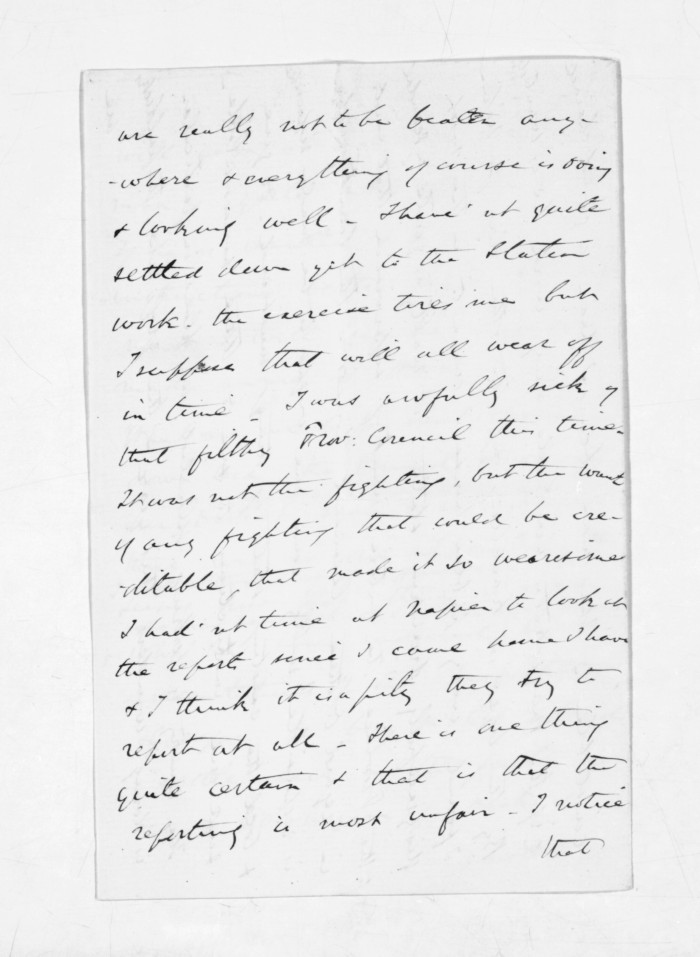 are really not to be beaten any-
-where & everything of course is doing
& looking well - I have'nt quite
settled down yet to the Station
work. the exercise tires me but
I suppose that will all wear off
in time - I was awfully sick of
that filthy Prov: Council this time.
It was not the fighting, but the want
of any fighting that would be cre-
-ditable, that made it so wearisome
I had'nt time at Napier to look at
the reports since I came home I have
& I think it is a pity they try to
report at all - There is one thing
quite certain & that is that the
reporting is most unfair - I notice
that